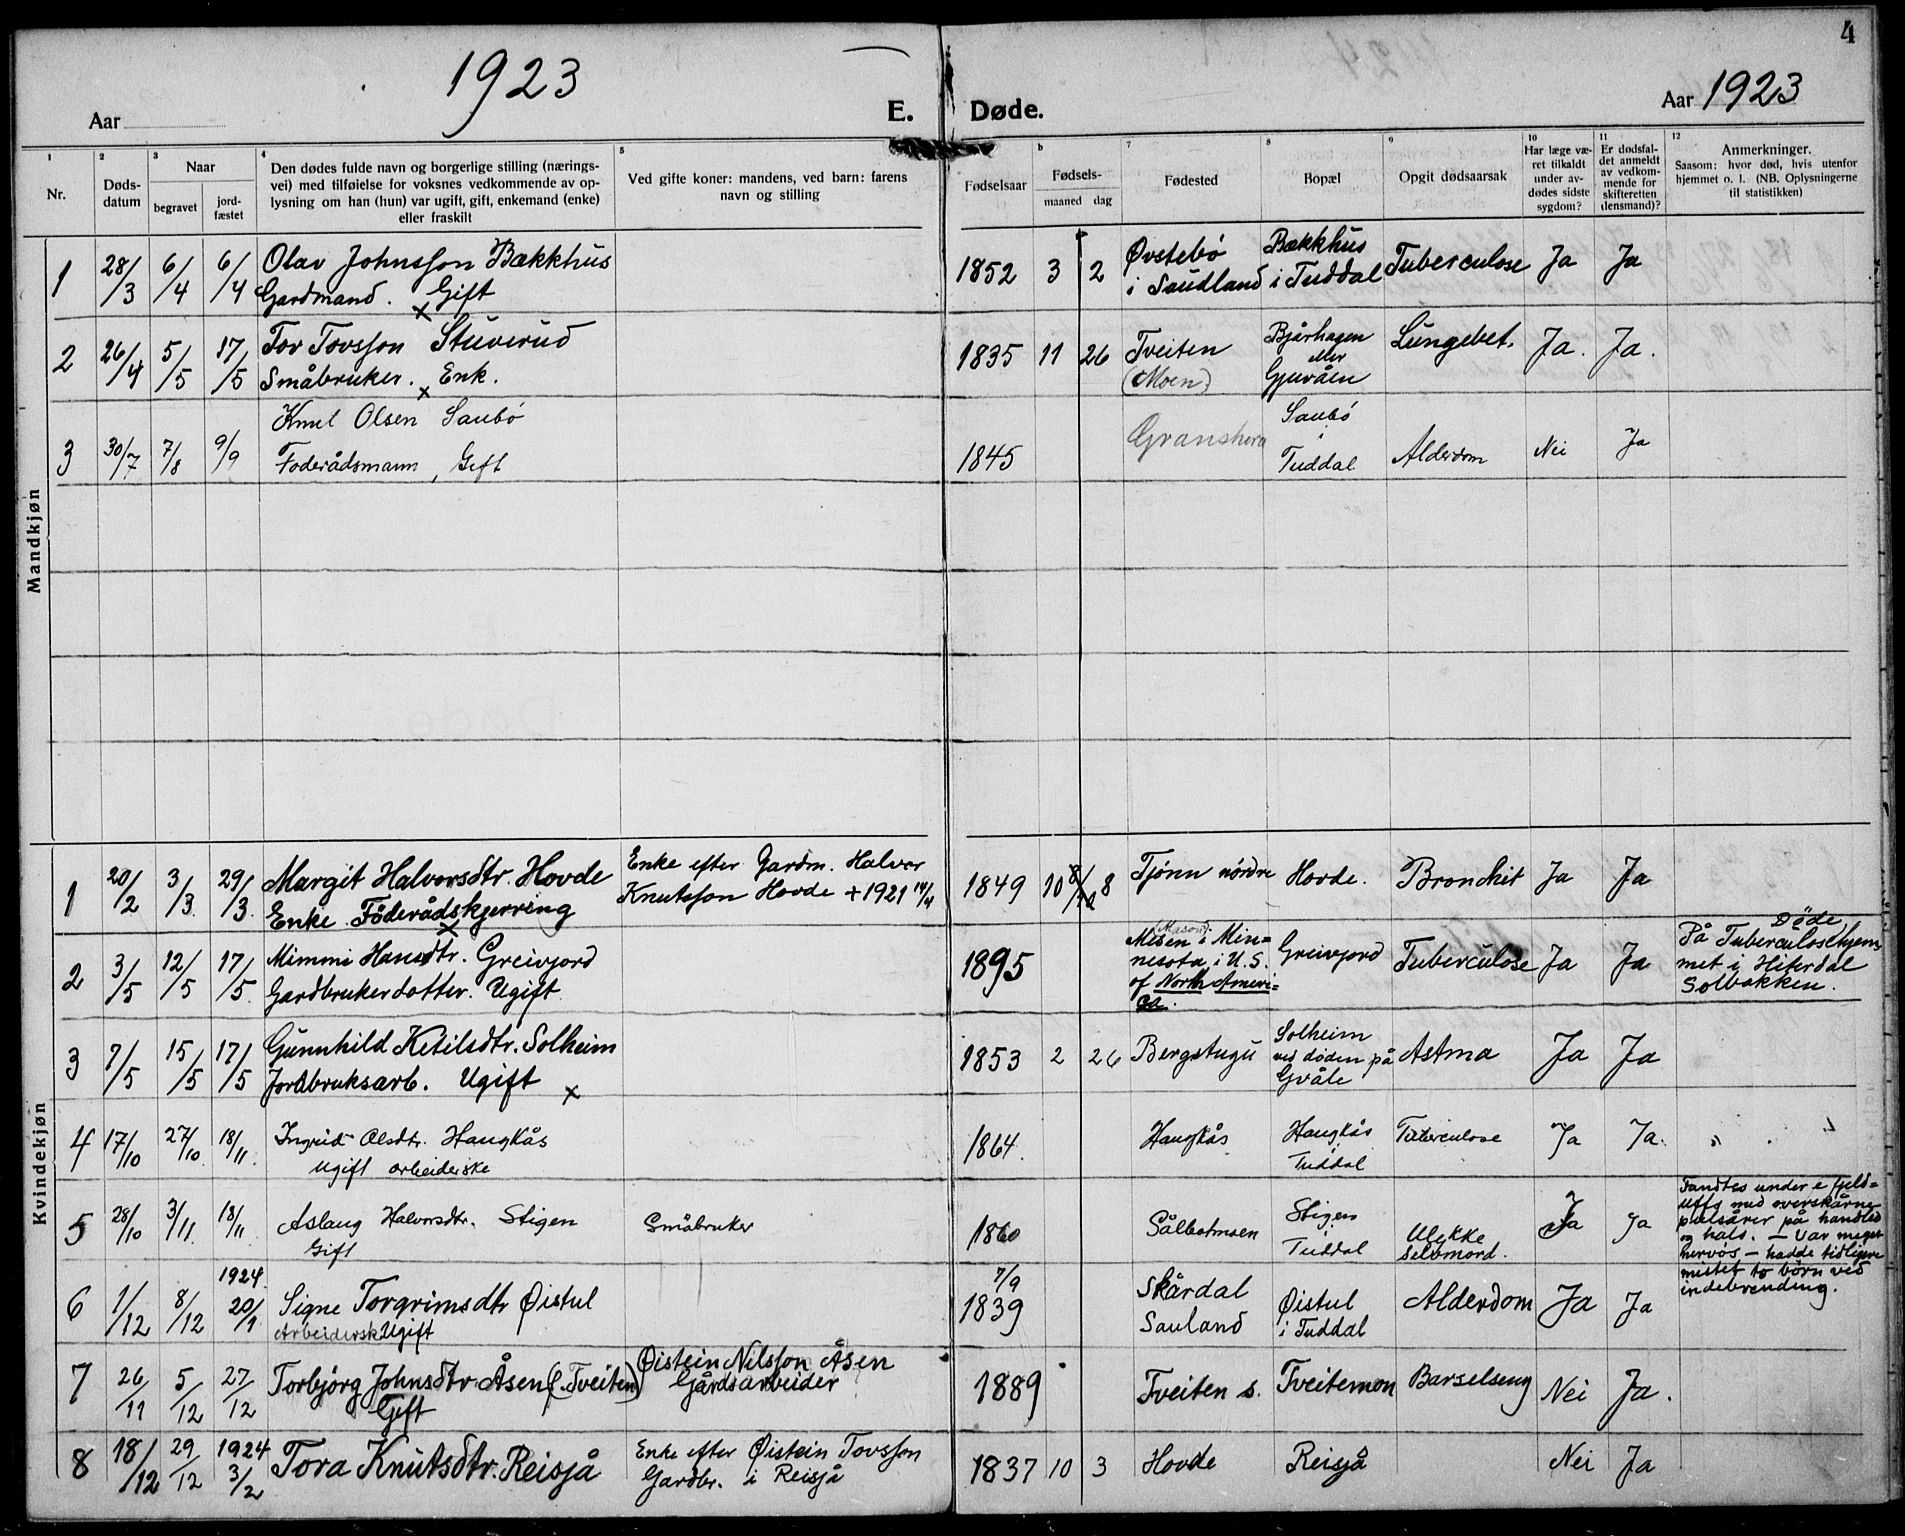 4
1923
Aar
E. Døde.
Aar 1923
1 2 3 4 5 6 7 8 9 10 11 12
Nr.
Døds-
datum
Naar
begravet
jord-
fæstet
Den dødes fulde navn og borgerlige stilling (nærings-
vei) med tilføielse for voksnes vedkommende av op-
lysning om han (hun) var ugift, gift, enkemand (enke)
eller fraskilt
Ved gifte koner: mandens, ved barn: farens
navn og stilling
Fødselsaar
Fødsels-
maaned dag
Fødested
Bopæl
Opgit dødsaarsak
Har læge væ-
ret tilkaldt
under av-
dødes sidste
sygdom?
Er dødsfal-
det anmeldt
av vedkom-
mende for
skifteretten
(lensmand)?
Anmerkninger.
Saasom: hvor død, hvis utenfor
hjemmet o. l. (NB. Oplysningerne
til statistikken)
Mandkjøn
1 28/3 6/4 6/4 Olav Johnsson Bækkhus
Gardmand. Gift x
1852 3 2
Øvstebó
i Saudland
Bækkhus
i Tuddal
Tuberculose Ja Ja
2 26/4 5/5 17/5 Tov Tovsson Stuverud
Småbruker. Enk. x
1835 11 26
Tveiten
(Moen)
Bjårhagen
eller
Gjuvåen
Lungebet. Ja. Ja.
3 30/7 7/8 9/9 Knut Olsen Saubó
Foderådsmann, Gift
1845
Gransherad
Saubó
i
Tuddal
Alderdom Nei Ja
Kvindekjøn
1 20/2 3/3. 29/3. Margit Halvorsdtr. Hovde
Enke Föderådskjerring x
Enke efter Gardm. Halvor
Knutsson Hovde + 1921 14/4
1849 10 8
Tjónn nórdre Hovde. Bronchit Ja Ja
2 3/5 12/5 17/5. Mimmi Hansdtr. Greivjord
Gardbrukerdotter. Ugift.
1895
(Mason)
Mesen i Min=
nesota i U.S.
of North Ameri=
ca.
Greivjord Tuberculose Ja Ja
Döde
På Tuberculosehjem
met i Hiterdal
Solbakken.
3 7/5 15/5 17/5 Gunnhild Ketilsdtr. Solheim
Jordbruksarb. Ugift x
1853 2 26 Bergstugu
Solheim
ved døden på
Gvåle
Astma Ja Ja
4 17/10 27/10. 18/11. Ingrid Olsdtr. Haugkås
ugift arbeiderske
1864. Haugkås
Haugkås
i
Tuddal
Tuberculose Ja Ja. "
5 28/10 3/11. 18/11 Aslaug Halvorsdtr. Stigen
Gift
Småbruker
1860 Sålbotmoen
Stigen
i
Tuddal
Ulykke
selvmord.
Ja Ja
Fandtes under e fjeld=
uffs med overskårne
pulsårer på handled
og hals. — Var meget
nervös — hadde tidligere
mistet to börn ved
indebrending.
6 1/12 8/12 1924. 20/1 Signe Torgrimsdtr Öistul
Arbeidersk Ugift
7/9
1839
Skårdal
Sauland
Öistul
i Tuddal
Alderdom Ja Ja
7 26/11 5/12 27/12 Torbjörg Johnsdtr Åsen (f. Tveiten)
Gift
Öistein Nilsson Åsen
Gårdsarbeider
1889 Tveiten s. Tveitemoen Barselseng Nei Ja.
8 18/12 29/12 1924 3/2 Tora Knutsdtr. Reisjå
Enke efter Öistein Tovsson
Gardbr. i Reisjå
1837 10 3 Hovde Reisjå Nei Ja